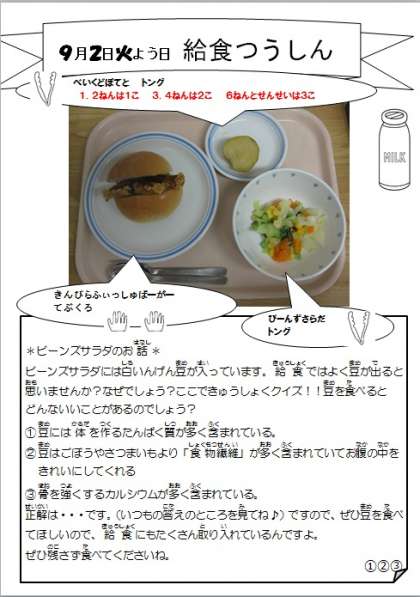 9月2日火よう日 給食つうしん
べいくどぽてと トング
1．2ねんは1こ 3．4ねんは2こ 6ねんとせんせいは3こ
MILK
きんぴらふぃっしゅばーがー
てぶくろ
びーんずさらだ
トング
＊ビーンズサラダのお話＊
ビーンズサラダには白いんげん豆が入っています。給食ではよく豆が出ると
思いませんか？なぜでしょう？ここできゅうしょくクイズ！！豆を食べると
どんないいことがあるのでしょう？
①豆には体を作るたんぱく質が多く含まれている。
②豆はごぼうやさつまいもより「食物繊維」が多く含まれていてお腹の中を
きれいにしてくれる
③骨を強くするカルシウムが多く含まれている。
正解は・・・です。（いつもの答えのところを見てね♪）ですので、ぜひ豆を食べ
てほしいので、給食にもたくさん取り入れているんですよ。
ぜひ残さず食べてくださいね。
①②③